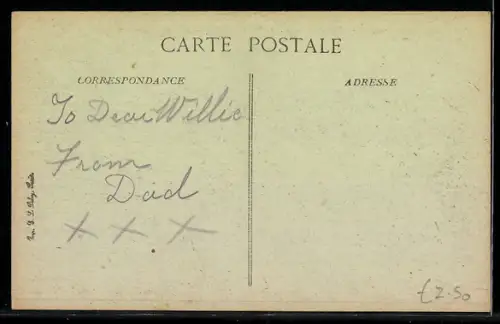 CARTE POSTALE
CORRESPONDANCE
ADRESSE
To Dear Willie
From
Dad
x x x
£2-50